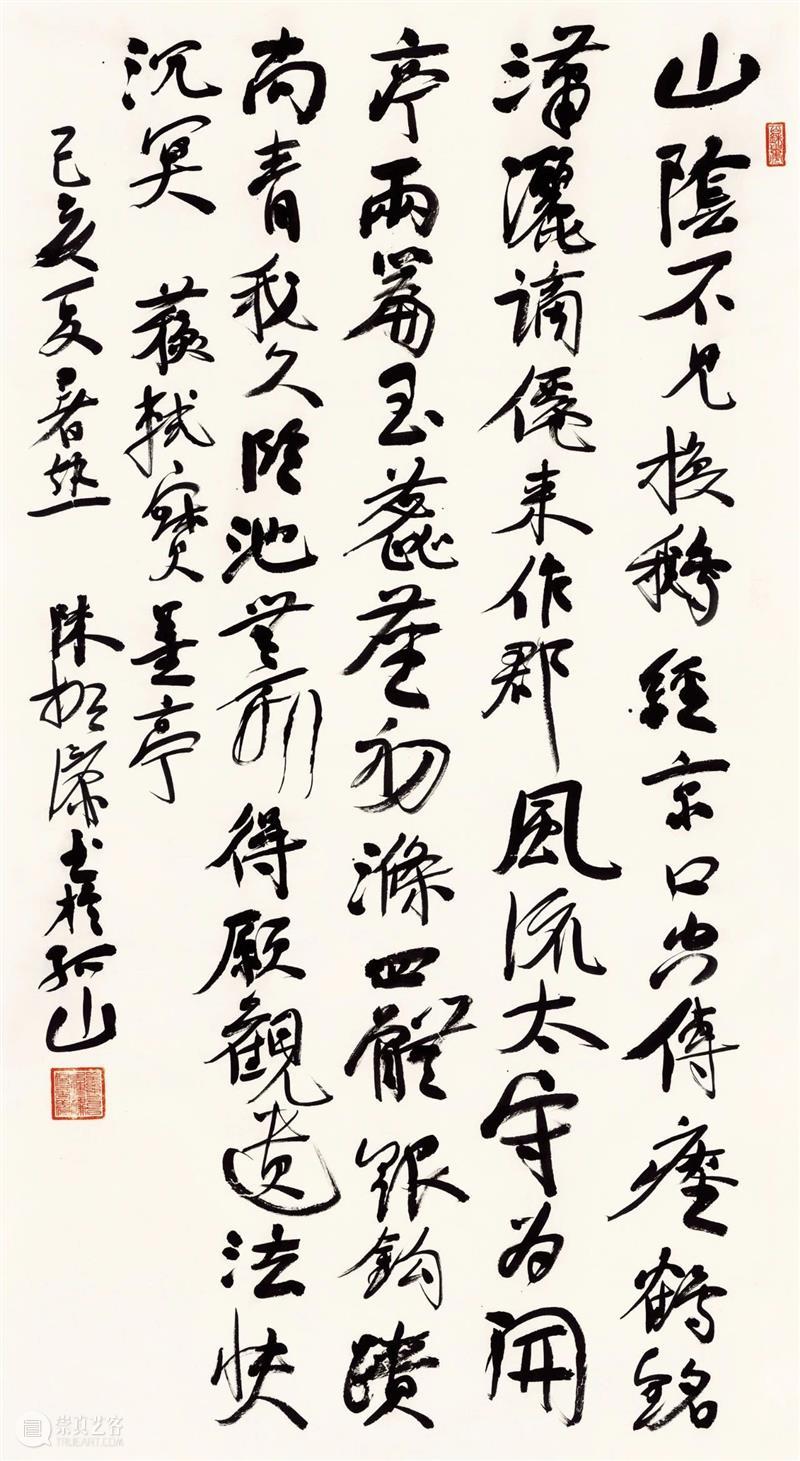 山陰不見換鵝經京口空傳瘞鶴銘
瀟灑謫僊来作郡風流太守为開
亭兩篇玉蕊塵初滌四體銀鈎蹟
尚青我久臨池無所得願觀遺法快
沉冥 蘇軾寶墨亭
己亥夏暑熱 陳振濂書於孤山
崇真艺客
TRUEART.COM